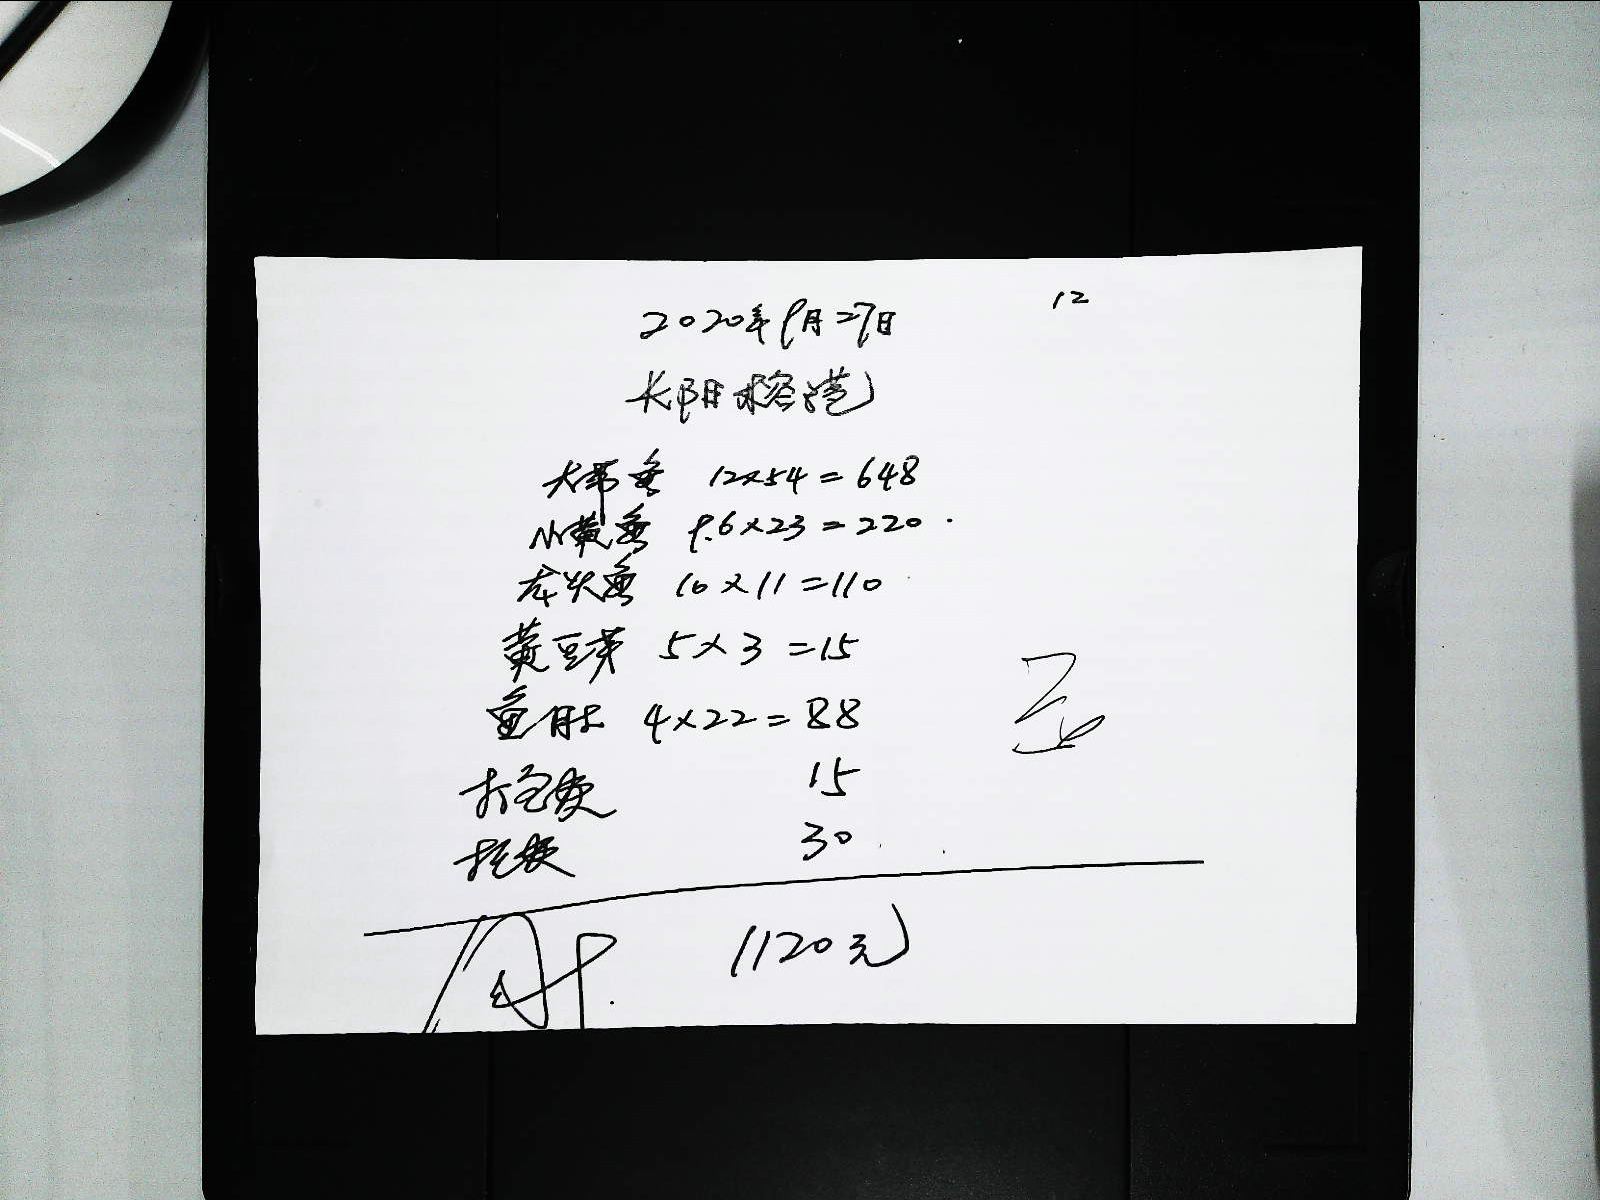 12
2020年9月27日
长阳榕港
大带鱼 12×54=648
小黄鱼 9.6×23=220.
龙头鱼 10×11=110
黄豆芽 5×3=15
鱼肚 4×22=88
打包费 15
托运费 30
1120元